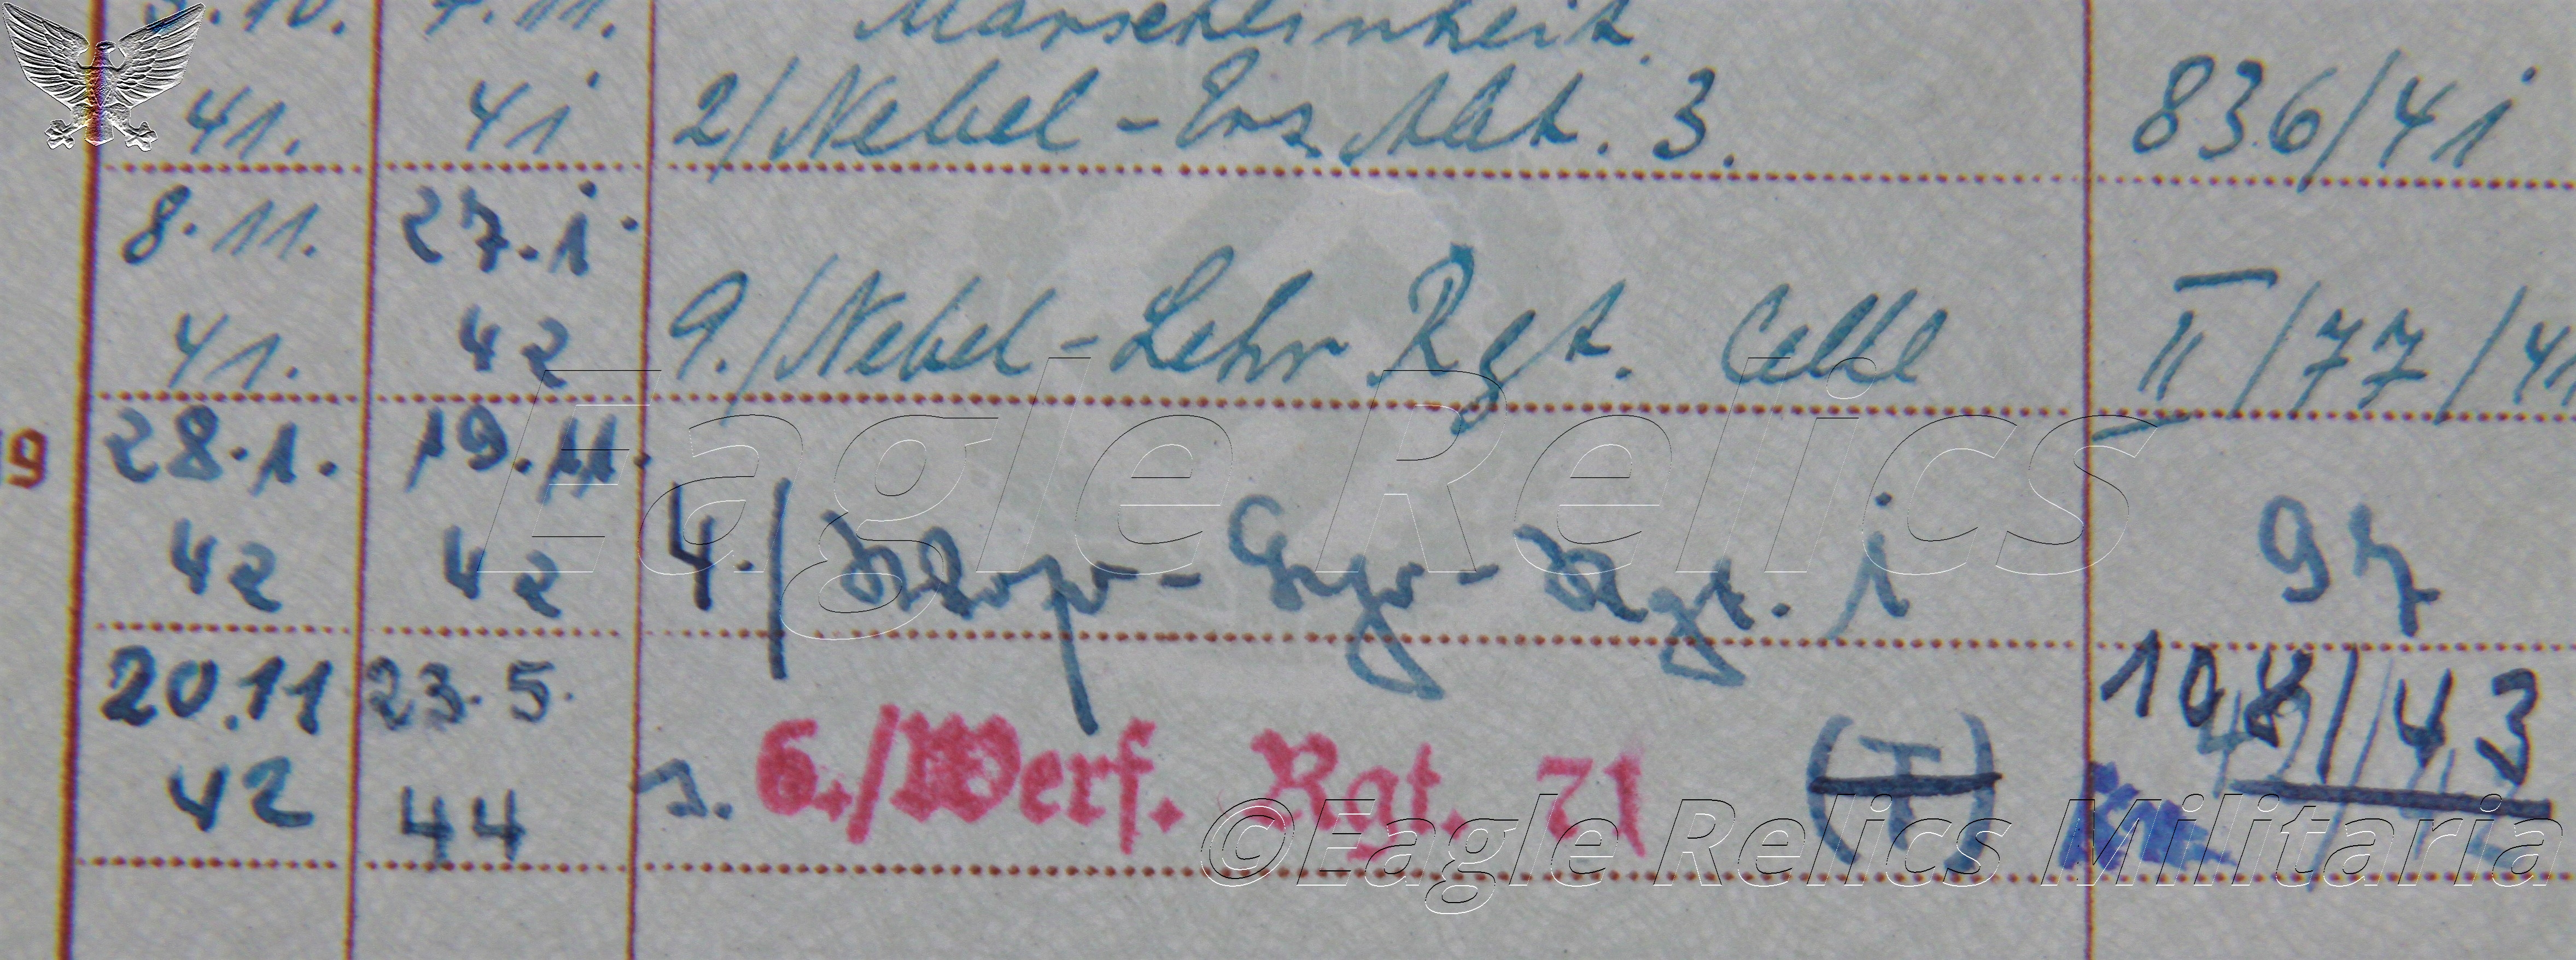 41. 41 Marscheinheit
2/Nebel-Ers. Abt. 3. 836/41
8.11. 27.1.
41. 42 9./Nebel-Lehr Rgt. Celle II/77/41
28.1. 19.11.
42 42 4./ Rgt. 1 97
20.11 23.5.
42 44 s. 6./Werf. Rgt. 71 (T) 108/43
19
Eagle Relics
©Eagle Relics Militaria